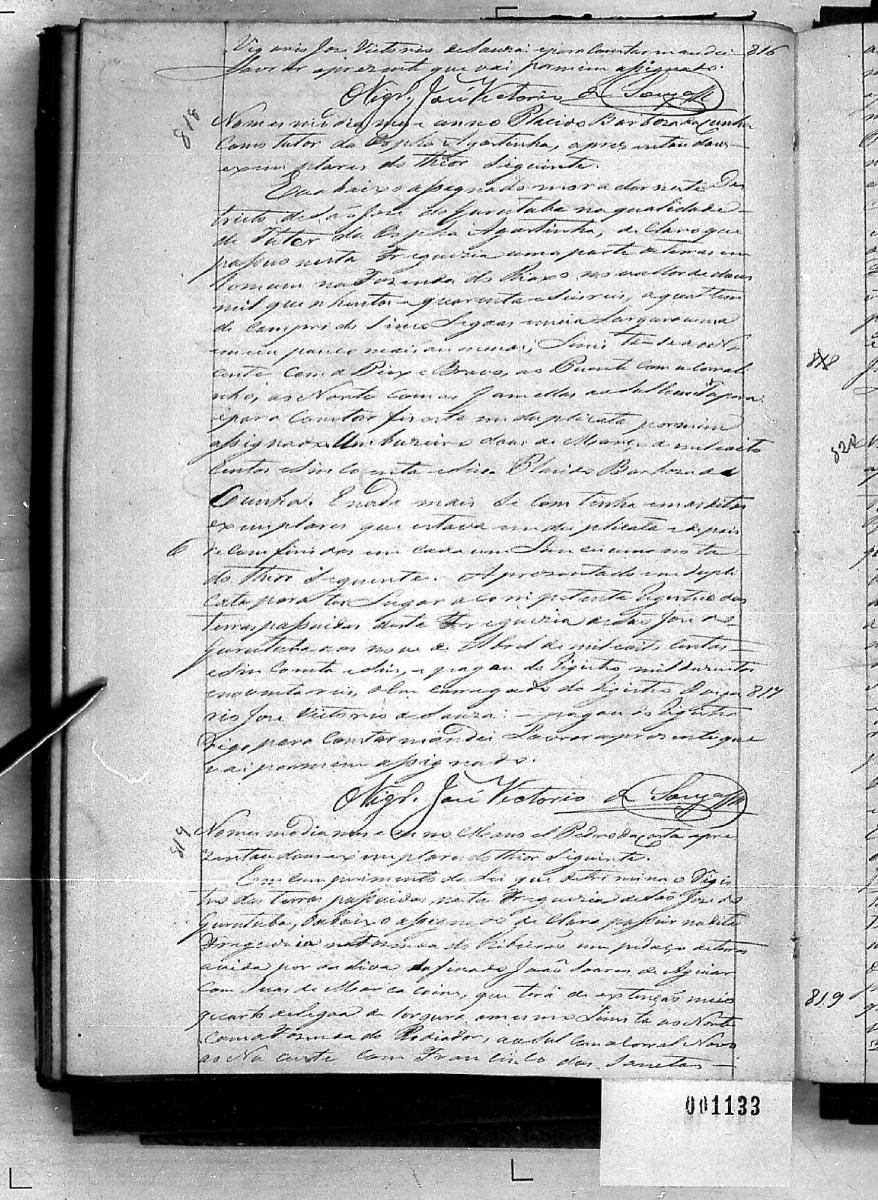 Vigario José Victorio de Souza: e para Constar mandei 816
Lavrar aprezente que vai por mim assignado.
O Vigr.º José Victorio de Souza
818
No mesmo dia mes e anno Placido Barboza da Cunha
Como tutor da Orphã Agostinha, aprezentou dous
exemplares do thior seguinte.
Eu abaixo assignado morador neste Des
tricto de São José do Gurutuba na qualidade
de Tutor da Orphã Agostinha, declaro que
possuo nesta Freguezia uma parte de terras em
Comum na Fazenda do no vallor de dous
mil quinhentos e quarenta e seis reis, a qual tem
de comprido Sinco Legoas e meia Largura uma
e meia pouco mais ou menos; Limita ao Na
cente com a Bravo, ao Puente com o Corral
nho, ao Norte com as Gamellas ao Sul
e para Constar fis este em duplicata por mim
assignado. dous de Março de mil oito
centos e Sincoenta e Seis Placido Barboza da
Cunha. E nada mais se Continha em os ditos
exemplares que estava em duplicata e depois
6 de Comferidos em cada um Lancei uma nota
do thior Seguinte. Aprezentado em dupli
cata para ter Lugar a Competente registro das
terras possuidas desta Freguezia de São José do
Gurutuba aos nove de Abril de mil oito centos
e Sincoenta e Seis, e pagou de registro mil duzentos
e noventa reis, O Em carregado do Registro O Viga 817
rio José Victorio de Souza: pagou de registro
Digo para Constar mandei Lavrar aprezente que
vai por mim assignado.
O Vigr.º José Victorio de Souza
819
No mesmo dia mes e anno Manoel Pedro da Costa apre
zentou dous exemplares do thior Seguinte.
Em Comprimento da Lei que detrimina o Regis
tro das terras possuidas, nesta Freguezia de São José do
Gurutuba, Eu abaixo assignado declaro possuir na dita
Freguezia na Fazenda do Ribeirão um pedaço de terras
avida por dadiva do finado João Soares de Aguiar
com que terá de extenção meio
quarto de legoa de largura o mesmo Limita ao Norte
com a Fazenda do ao Sul com o Corral Novo
ao Nacente com Francisco dos Santos
001133
818
828
819